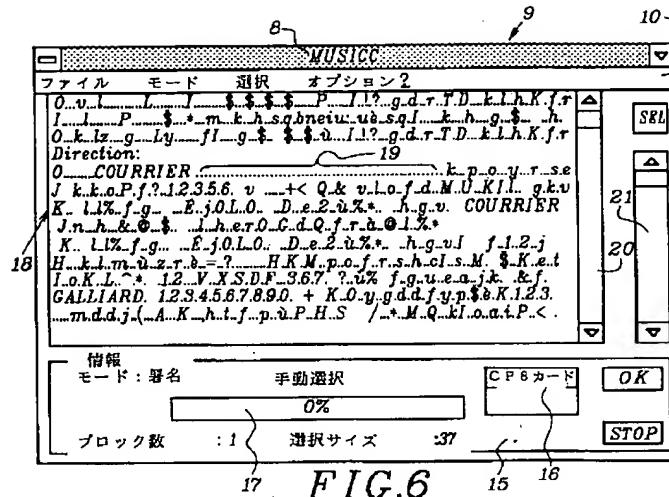 8 9 10
MUSICC
ファイル モード 選択 オプション2
O..v..l.........L......I......$..$..$..$.....P.....I..!?...g..d..r..T.D...k..l..h.K..f..r
I....l.......P.......$...*..m...k..h..s.q.bneiu..uè..s.q.I....k...h...g..$.... ..h.
O..k..lz..g....Ly.....fI....g..$.. $..$..ù....I..!?...g..d..r..T.D...k..l..h.K..f..r
Direction: 19
O........COURRIER ........................ k...p...o..y..r..s..e
J k..k..o.P..f.?..1.2.3.5.6. v ....+< Q.& v..l..o..f..d..M..U..KI.l.. g..k.v
K.. l..l%..f..g... ...E..j.O.L.O.. ..D..e.2..ù.%.*.. ..h..g..v. COURRIER
J..n..h...&..@..$.... ...l..h..e.r.O..C..d.Q..f..r..à..@..l.%.*
K.. l..l%..f..g... ...E..j.O.L.O.. ..D..e.2..ù.%.*.. ..h..g..v.I f..1..2..j
H...k..l..m..ù..z..r..è..=..?...... ..H.K.M.p.o..f..r..s.h.cI.s.M. $..K.e.t
I..o.K..L..^..*. .1.2. ..V..X.S.D.F...3.6.7. ?..ù% f..g..u..e..a.j.k. .&.f.
GALLIARD. 1.2.3.4.5.6.7.8.9.0. + K..O..y..g..d.d..f..y.p.$.è.K.1.2.3.
.....m..d.d..j..(...A...K...h..t..f...p..ù..P..H..S /...*..M..Q...kI..o..a.i..P..< .
SEL
21
20
18
情報
モード:署名 手動選択 CP8カード OK
0%
ブロック数 :1 選択サイズ :37 STOP
17 15 16
FIG.6